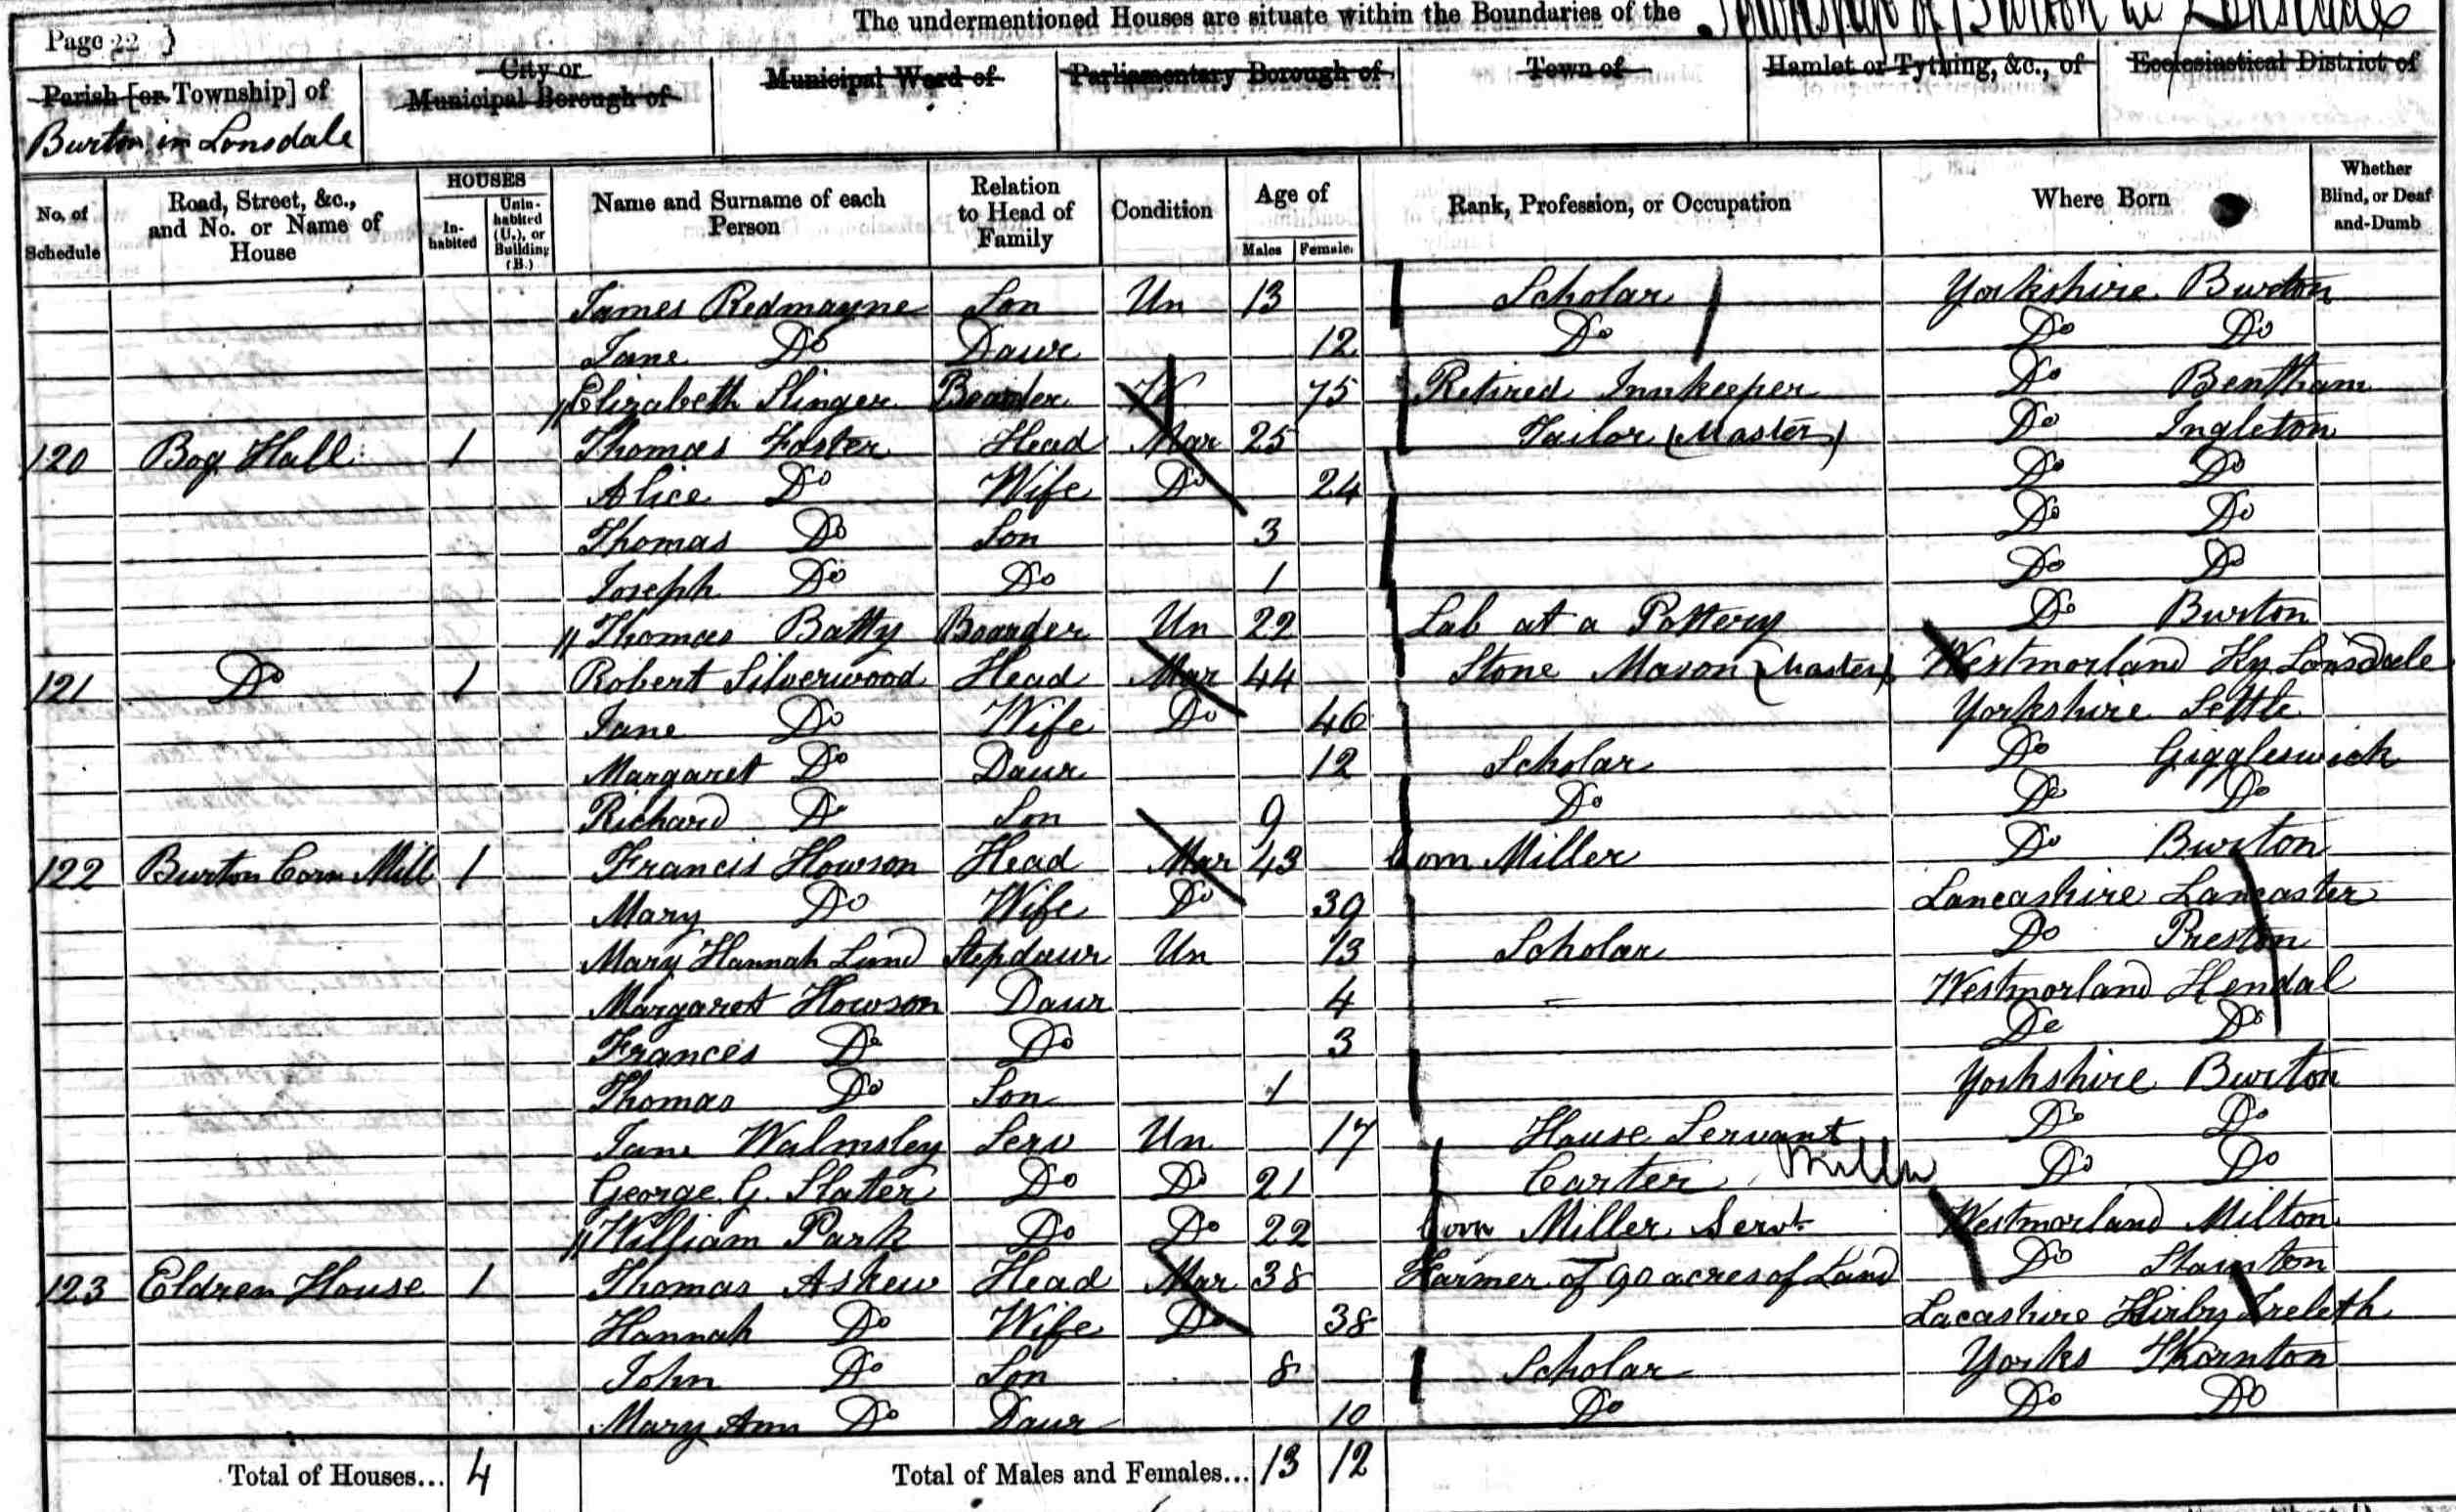 The undermentioned Houses are situate within the Boundaries of the Township of Burton in Lonsdale
Page 22 )
Parish [or Township] of
Burton in Lonsdale
City or Municipal Borough of
Municipal Ward of
Parliamentary Borough of
Town of
Hamlet or Tything, &c., of
Ecclesiastical District of
No. of Schedule
Road, Street, &c., and No. or Name of House
HOUSES
In-habited
Unin-habited (U.), or Building (B.)
Name and Surname of each Person
Relation to Head of Family
Condition
Age of
Males
Female.
Rank, Profession, or Occupation
Where Born
Whether Blind, or Deaf-and-Dumb
James Redmayne Son Un 13 Scholar Yorkshire Burton
Jane Do Daur 12 Do Do Do
Elizabeth Slinger Boarder W 75 Retired Innkeeper Do Bentham
120 Bog Hall 1 Thomas Foster Head Mar 25 Tailor (Master) Do Ingleton
Alice Do Wife Do 24 Do Do
Thomas Do Son 3 Do Do
Joseph Do Do 1 Do Do
Thomas Batty Boarder Un 22 Lab at a Pottery Do Burton
121 Do 1 Robert Silverwood Head Mar 44 Stone Mason (Master) Westmorland Ky Lonsdale
Jane Do Wife Do 46 Yorkshire Settle
Margaret Do Daur 12 Scholar Do Giggleswick
Richard Do Son 9 Do Do Do
122 Burton Corn Mill 1 Francis Howson Head Mar 43 Corn Miller Do Burton
Mary Do Wife Do 39 Lancashire Lancaster
Mary Hannah Lund Stepdaur Un 13 Scholar Do Preston
Margaret Howson Daur 4 Westmorland Kendal
Frances Do Do 3 Do Do
Thomas Do Son 1 Yorkshire Burton
Jane Walmsley Serv Un 17 House Servant Do Do
George G. Slater Do Do 21 Carter Miller Do Do
William Park Do Do 22 Corn Miller Servt Westmorland Milton
123 Eldren House 1 Thomas Askew Head Mar 38 Farmer of 90 acres of Land Do Stainton
Hannah Do Wife Do 38 Lacashire Kirby Ireleth
John Do Son 8 Scholar Yorks Thornton
Mary Ann Do Daur 10 Do Do Do
Total of Houses... 4 Total of Males and Females... 13 12